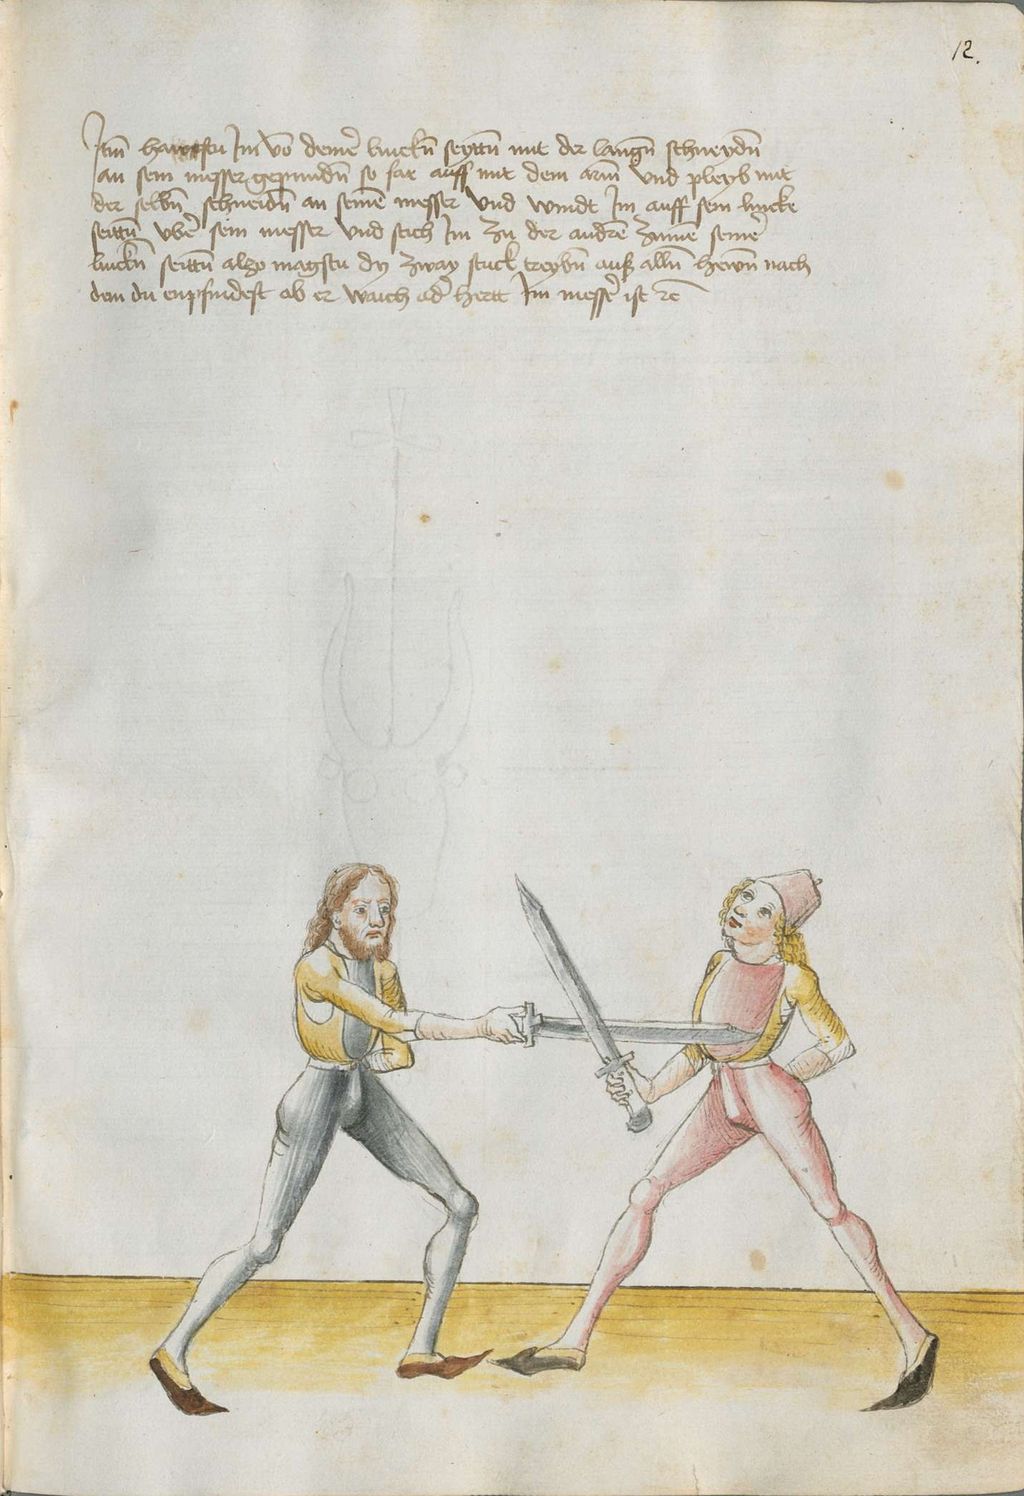 12.
Itm̄ hawstu Im vō deinē linckñ seyttñ mit der langñ schneydñ
an sein messer gepundñ so far auff mit dem arm̄ vnd pleyb mit
der selbñ schneidñ an seinē messer vnd windt Im auff sein lincke
seittñ vbē sein messer vnd stich Im zu der andrē zynnē seinē
linckñ seittñ also magstu dy zway stuck treybñ auß allñ hewñ nach
dem du enpfindest ob er waich adē hertt Im messē ist rē